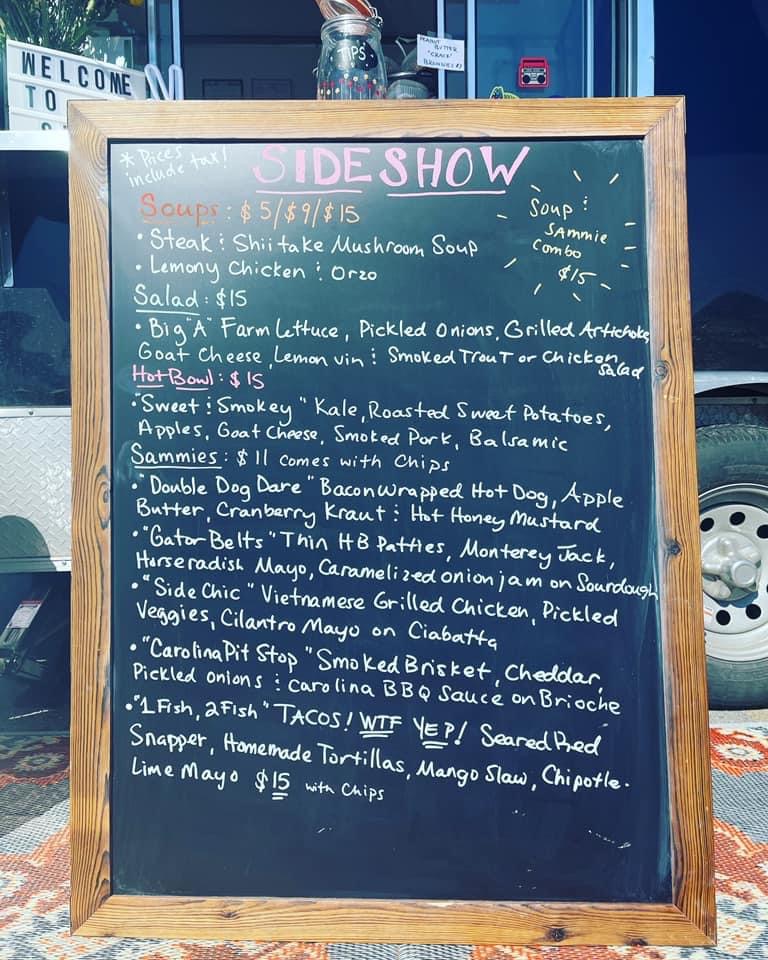 WELCOME
TO
TIPS
PEANUT
BUTTER
"CRACK"
BROWNIES
* Prices
include tax!
SIDESHOW
Soups: $5/$9/$15
• Steak & Shiitake Mushroom Soup
• Lemony Chicken & Orzo
Soup &
SAMMIE
Combo
$15
Salad: $15
• Big "A" Farm Lettuce, Pickled Onions, Grilled Artichoke,
Goat Cheese, Lemon vin & Smoked Trout or Chicken
Salad
Hot Bowl: $15
• "Sweet & Smokey" Kale, Roasted Sweet Potatoes,
Apples, Goat Cheese, Smoked Pork, Balsamic
Sammies: $11 comes with Chips
• "Double Dog Dare" Bacon wrapped Hot Dog, Apple
Butter, Cranberry Kraut & Hot Honey Mustard
• "Gator Belts" Thin HB Patties, Monterey Jack,
Horseradish Mayo, Caramelized onion jam on Sourdough
• "Side Chic" Vietnamese Grilled Chicken, Pickled
Veggies, Cilantro Mayo on Ciabatta
• "Carolina Pit Stop" Smoked Brisket, Cheddar,
Pickled onions & Carolina BBQ Sauce on Brioche
• "1 Fish, 2 Fish" TACOS! WTF YEP! Seared Red
Snapper, Homemade Tortillas, Mango Slaw, Chipotle-
Lime Mayo $15 with Chips